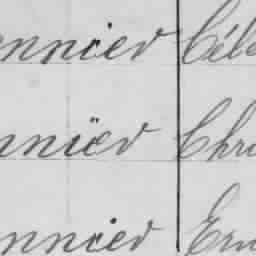 nnier Cél
nnier Chr
nnier Ern